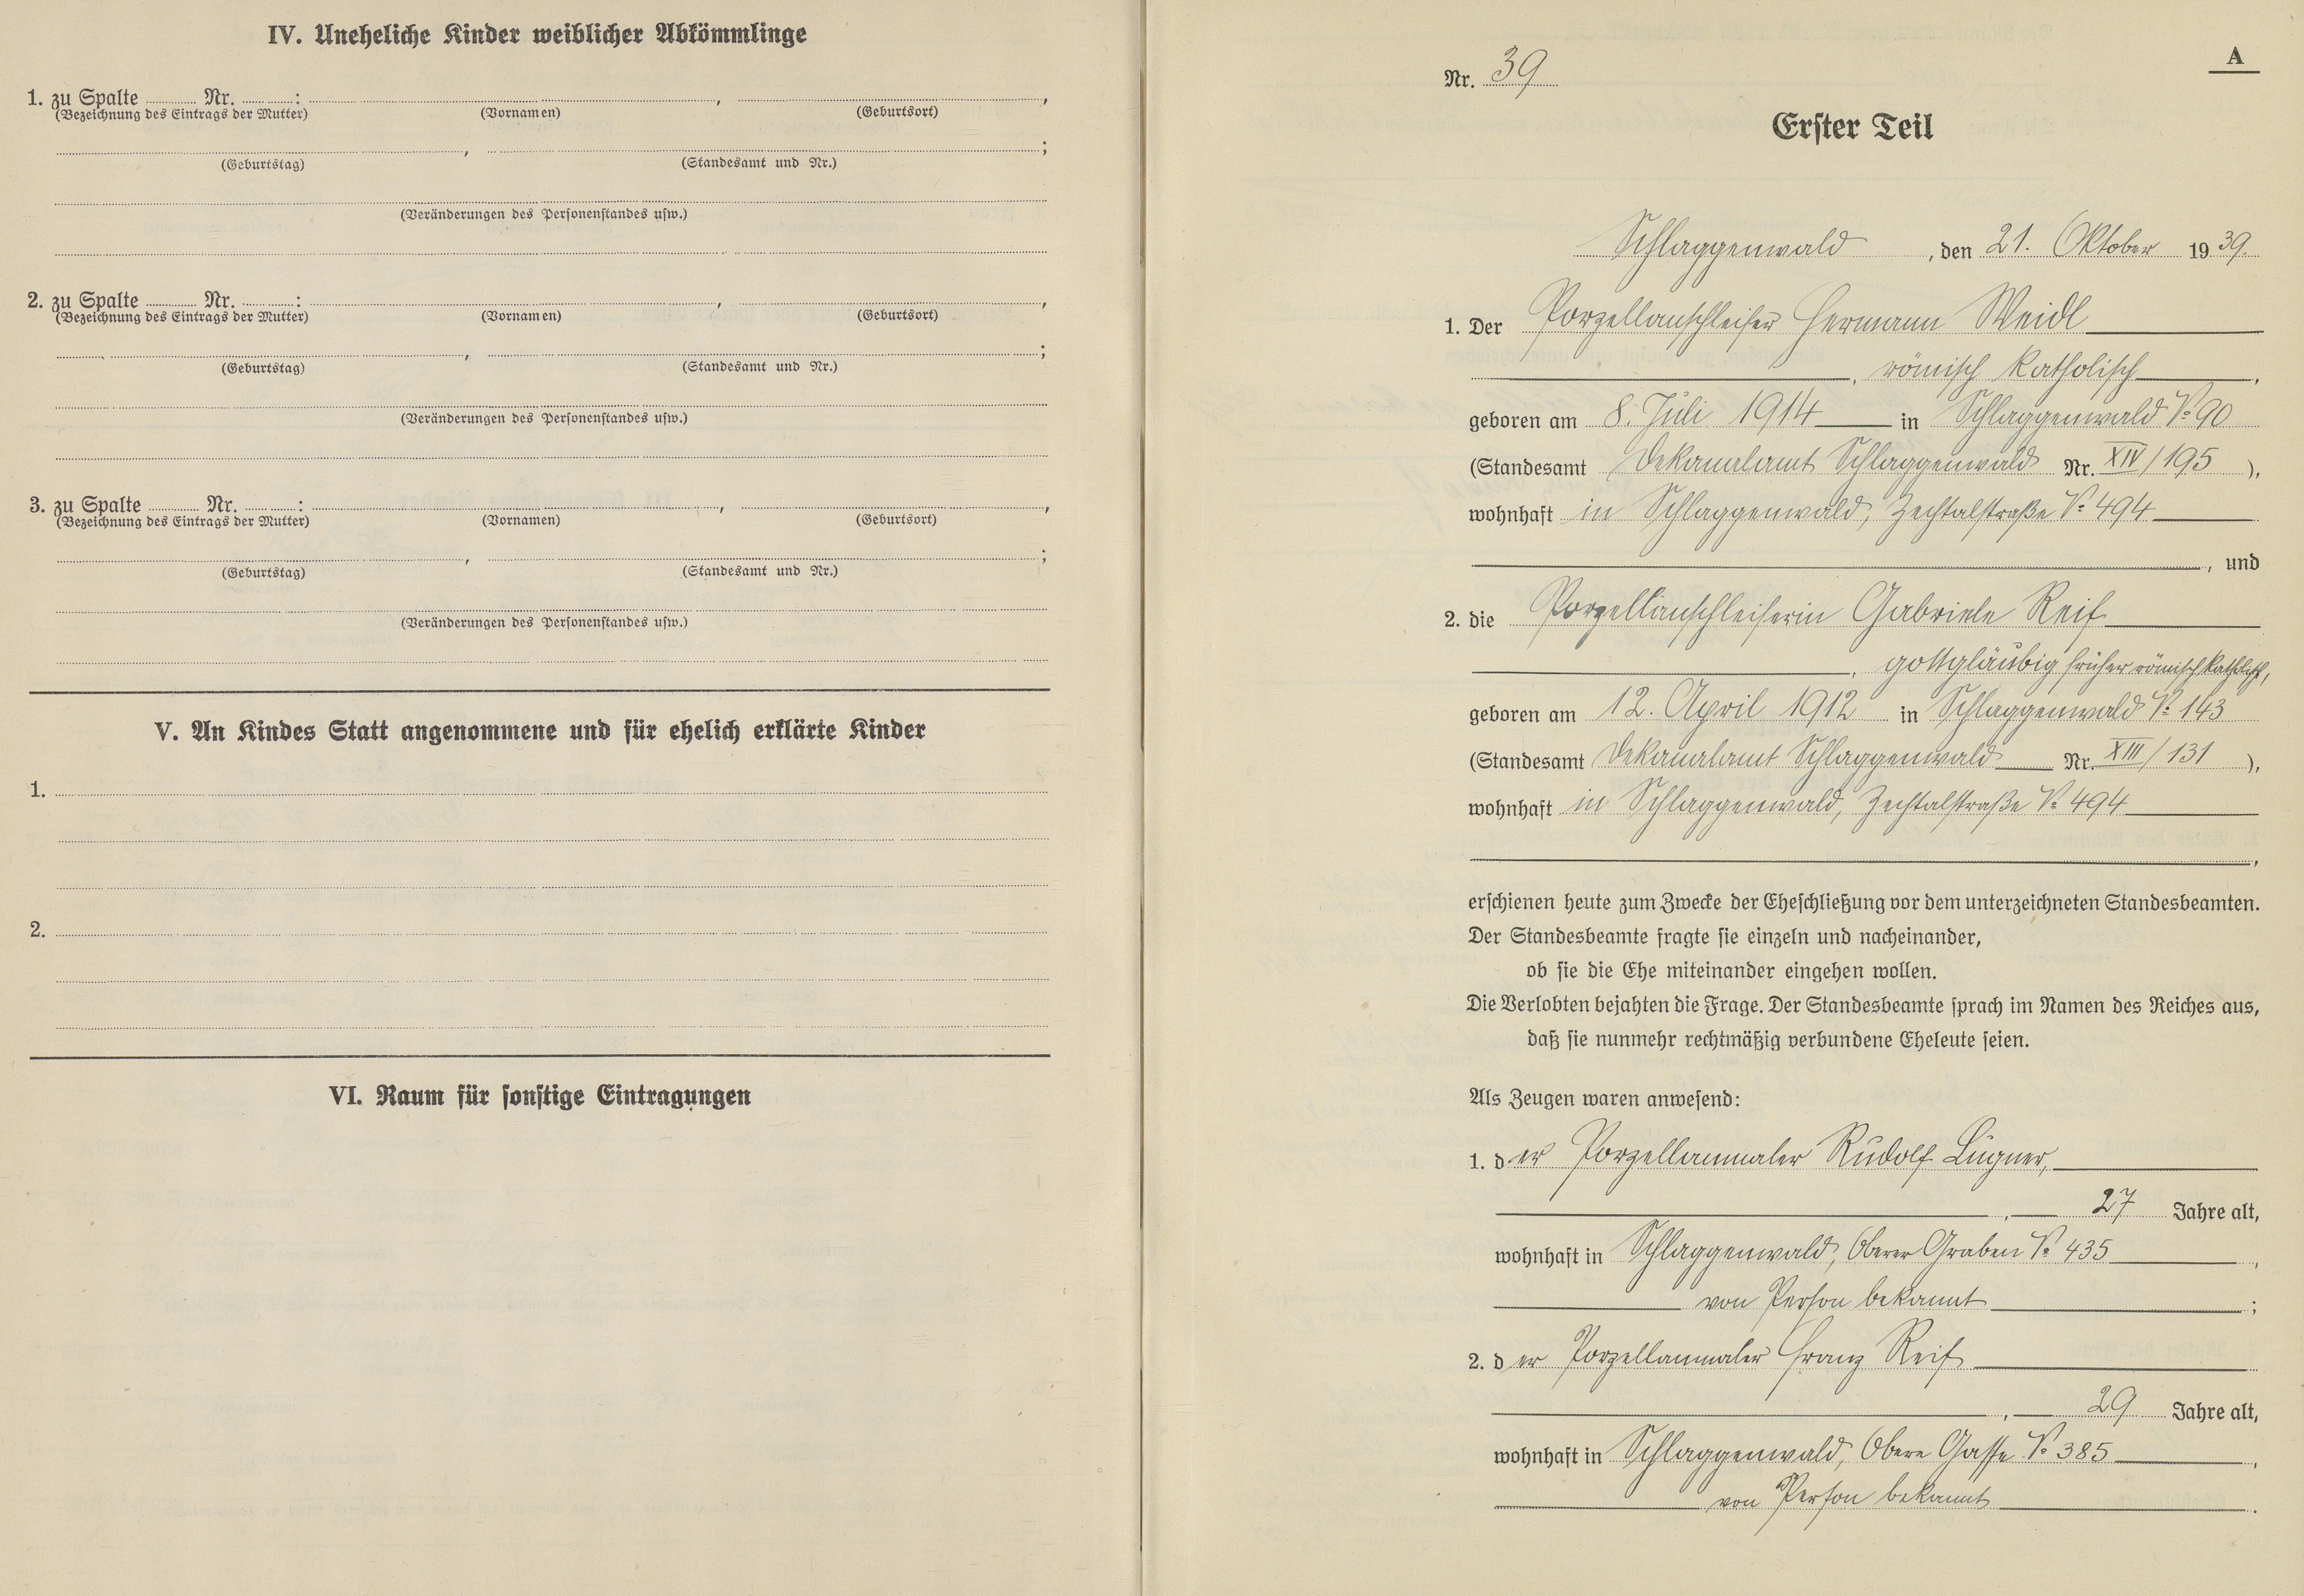 IV. Uneheliche Kinder weiblicher Abkömmlinge
1. zu Spalte Nr. : , ,
(Bezeichnung des Eintrags der Mutter) (Vornamen) (Geburtsort)
, ;
(Geburtstag) (Standesamt und Nr.)
(Veränderungen des Personenstandes usw.)
2. zu Spalte Nr. : , ,
(Bezeichnung des Eintrags der Mutter) (Vornamen) (Geburtsort)
, ;
(Geburtstag) (Standesamt und Nr.)
(Veränderungen des Personenstandes usw.)
3. zu Spalte Nr. : , ,
(Bezeichnung des Eintrags der Mutter) (Vornamen) (Geburtsort)
, ;
(Geburtstag) (Standesamt und Nr.)
(Veränderungen des Personenstandes usw.)
V. An Kindes Statt angenommene und für ehelich erklärte Kinder
1.
2.
VI. Raum für sonstige Eintragungen
A
Nr. 39
Erster Teil
Schlaggenwald, den 21. Oktober 1939.
1. Der Porzellanschleifer Hermann Weidl
, römisch katholisch,
geboren am 8. Juli 1914 in Schlaggenwald No 90
(Standesamt Dekanalamt Schlaggenwald Nr. XIV/195),
wohnhaft in Schlaggenwald, Zechtalstraße No 494
, und
2. die Porzellanschleiferin Gabriele Reif
, gottgläubig früher römisch katholisch,
geboren am 12. April 1912 in Schlaggenwald No 143
(Standesamt Dekanalamt Schlaggenwald Nr. XIII/131),
wohnhaft in Schlaggenwald, Zechtalstraße No 494
,
erschienen heute zum Zwecke der Eheschließung vor dem unterzeichneten Standesbeamten.
Der Standesbeamte fragte sie einzeln und nacheinander,
ob sie die Ehe miteinander eingehen wollen.
Die Verlobten bejahten die Frage. Der Standesbeamte sprach im Namen des Reiches aus,
daß sie nunmehr rechtmäßig verbundene Eheleute seien.
Als Zeugen waren anwesend:
1. der Porzellanmaler Rudolf Lugner,
, 27 Jahre alt,
wohnhaft in Schlaggenwald, Oberer Graben No 435,
von Person bekannt;
2. der Porzellanmaler Franz Reif
, 29 Jahre alt,
wohnhaft in Schlaggenwald, Obere Gasse No 385,
von Person bekannt.